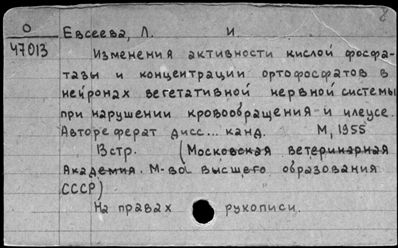 8
О Евсеева, Л. И
47013
Изменения активности кислой фосфа-
тазы и концентрации ортофосфатов в
нейронах вегетативной нервной системы
при нарушении кровообращения и илеусе.
Автореферат дисс... канд. М, 1955
8 стр. (Московская ветеринарная
Академия. М-во высшего образования
СССР)
На правах рукописи.